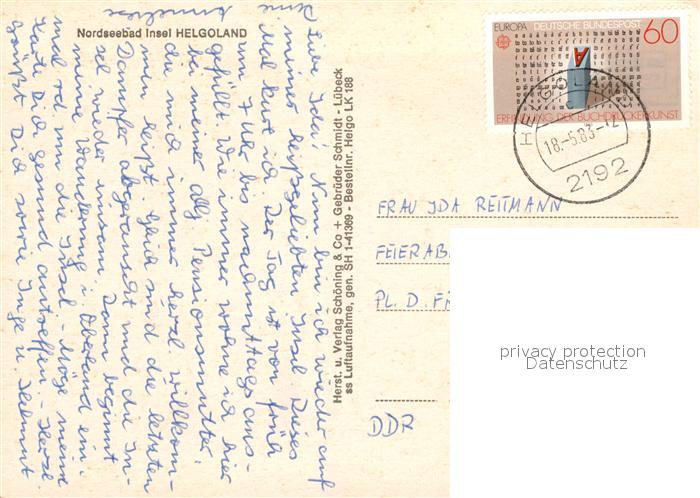 Nordseebad Insel HELGOLAND
Liebe Ida! Nun bin ich wieder auf
meiner heißgeliebten Insel. Dieses
Mal kurt ich. Der Tag ist von früh
um 7 Uhr bis nachmittags aus-
gefüllt. Wie immer wohne ich hier
bei meiner allg. Pensionsmutter,
die mich immer herzl. willkom-
men heißt. Gleich sind die letzten
Dampfer abgerauscht und die In-
sel wieder einsam. Dann beginnt
meine Wanderung i. Oberland ein-
mal rd. um die Insel. - Möge meine
Karte Dich gesund antreffen. - Herzl.
grüßt Dich sowie Inge u. Helmut
Deine
Anneliese
Herst. u. Verlag Schöning & Co + Gebrüder Schmidt - Lübeck
ss Luftaufnahme, gen. SH 1-41369 - Bestellnr. Helgo LK 188
EUROPA DEUTSCHE BUNDESPOST 60
ERFINDUNG DER BUCHDRUCKERKUNST
HELGOLAND
18.-5.83-12
2192
FRAU IDA REITMANN
FEIERAB
PL. D. F
DDR
privacy protection
Datenschutz